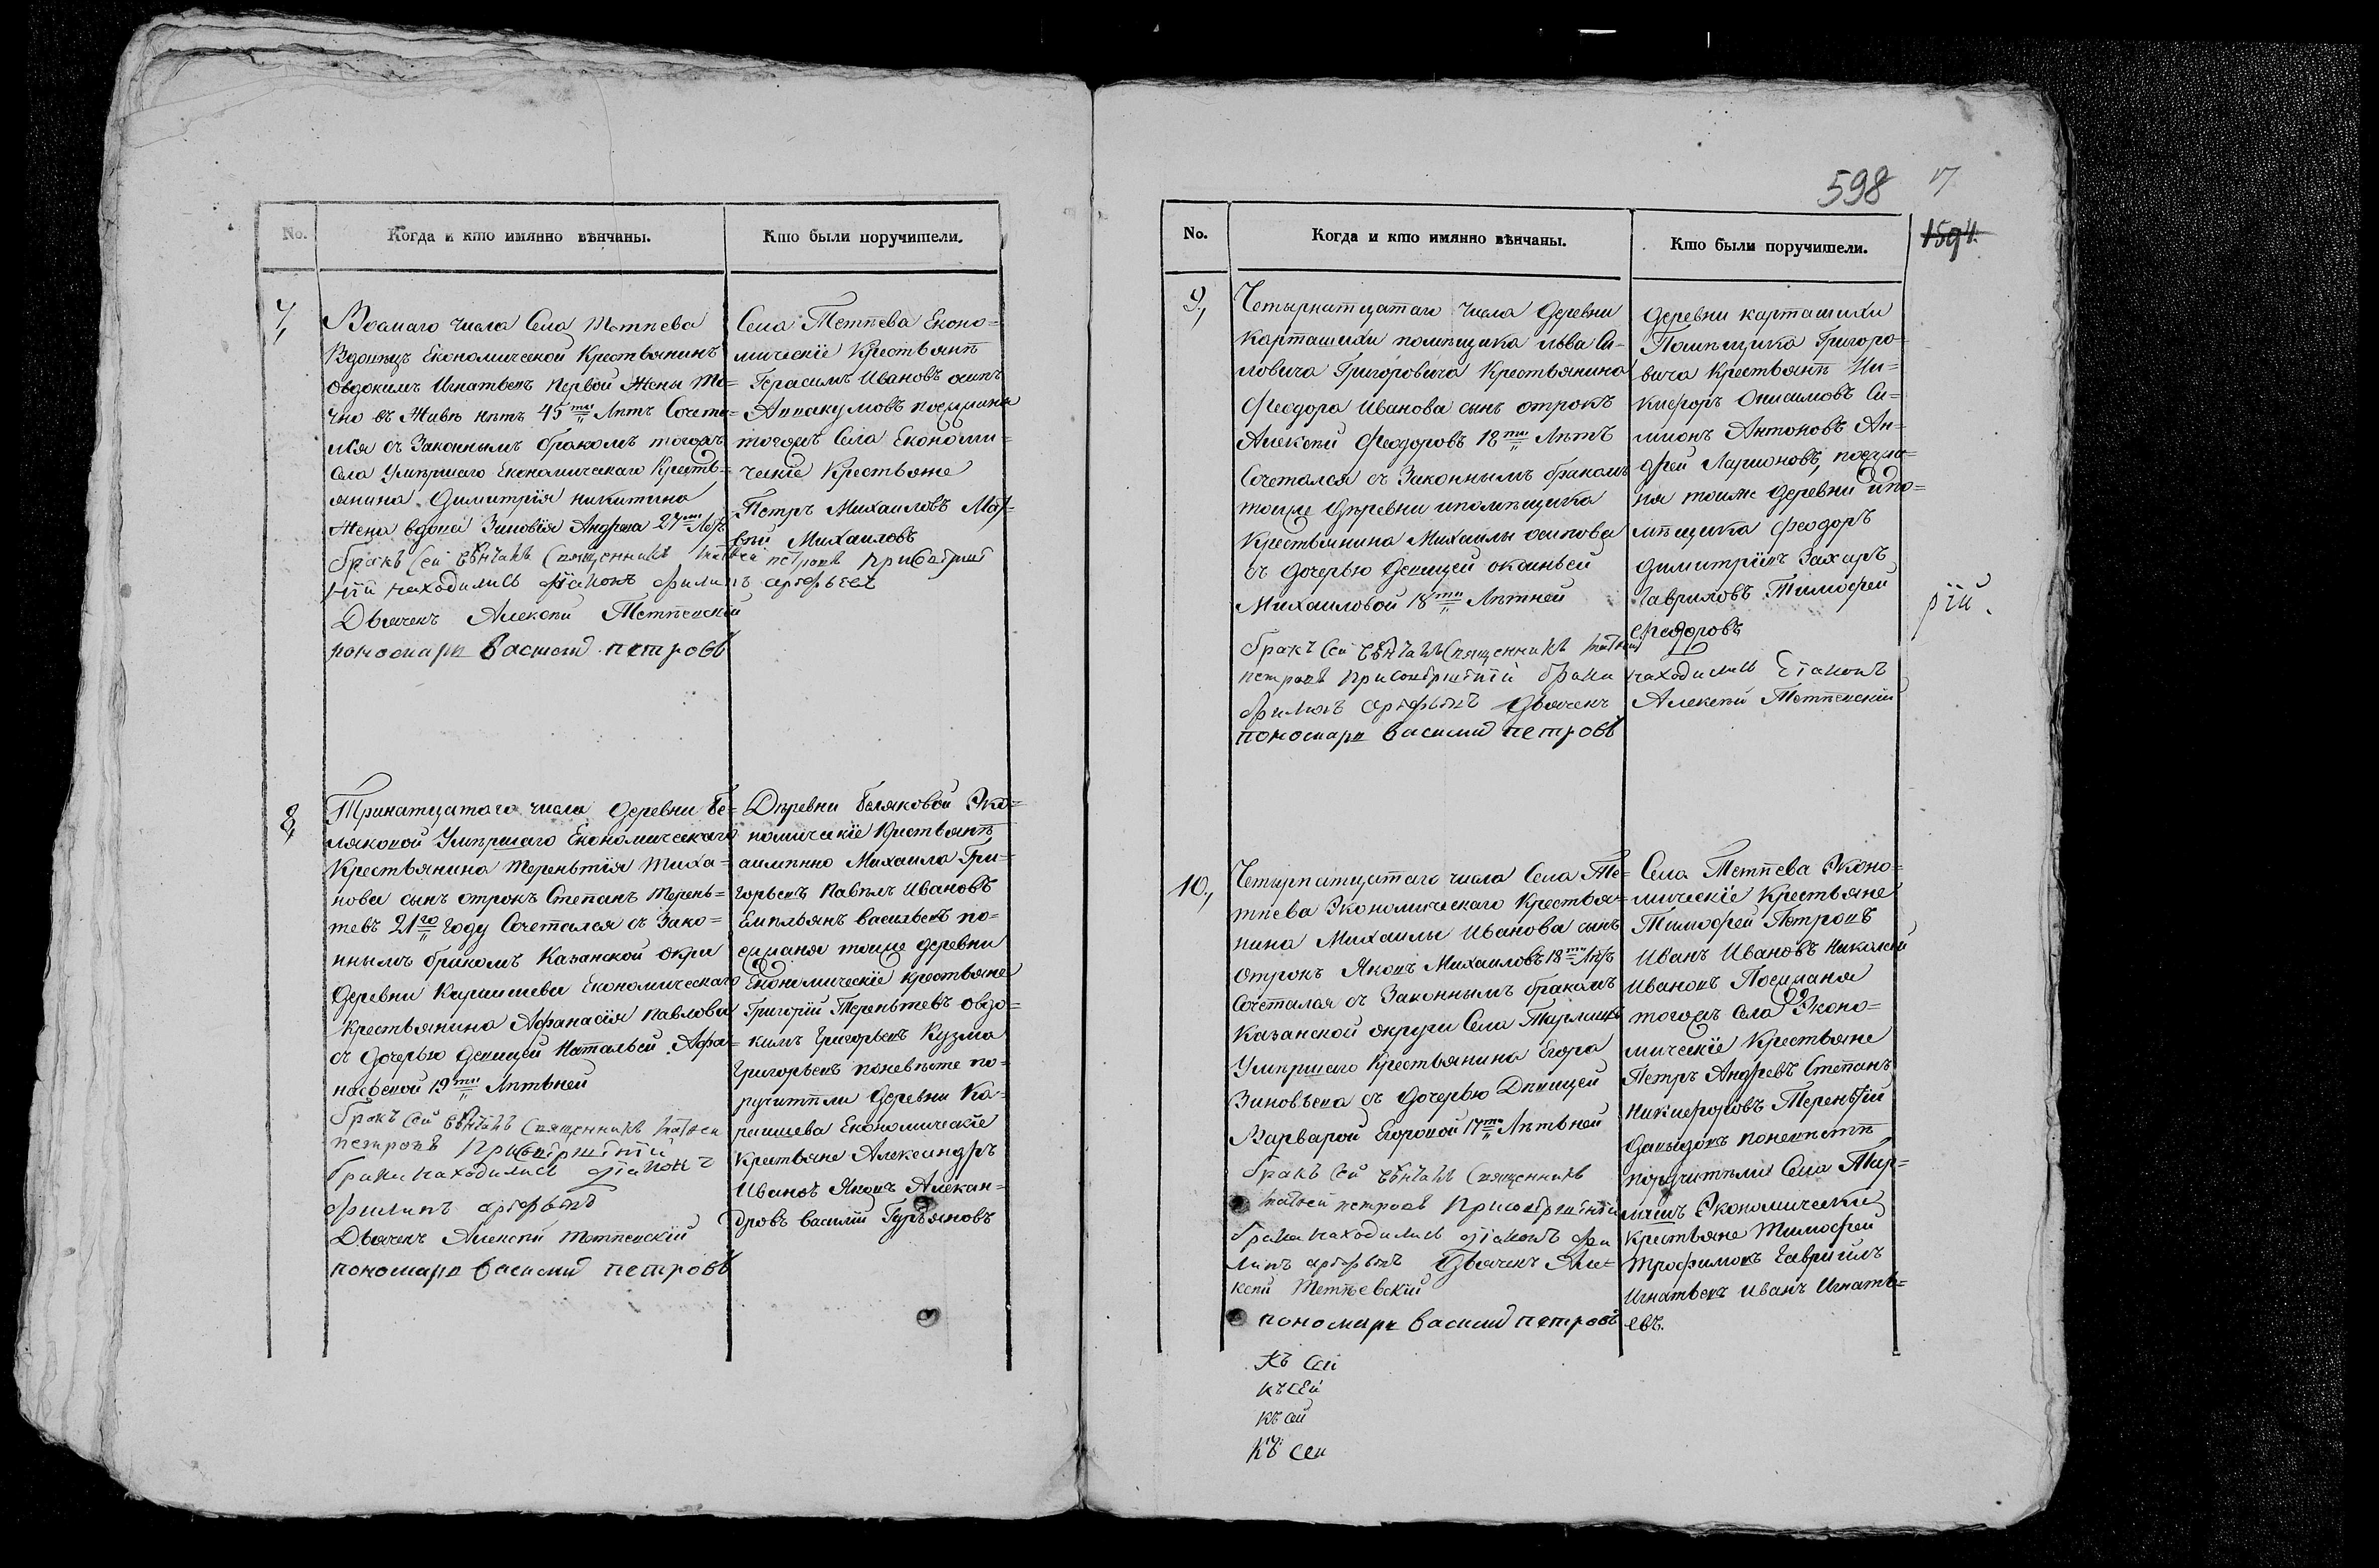 No.
Когда и кто имянно вѣнчаны.
Кто были поручители.
7,
Восмаго числа Села Тетѣева
Вдовецъ Економической Крестьянинъ
Овдокимъ Игнатьевъ первой Жены
въ Живѣ нѣтъ 45ти Лѣтъ Сочета=
лся съ Законнымъ бракомъ тогожъ
села Умѣршаго Економическаго Кресть=
янина Димитрія никитина
Жена вдова Зиновія Андрева 27ми
бракъ Сей вѣнчалъ Священникъ матвей петровъ
находились діаконъ филипъ арефьевъ
Дьячекъ Алексѣй Тетѣевскій
пономарь Василий петровъ
Села Тетѣева Еконо=
мическіе Крестьянѣ
Герасимъ Ивановъ осипъ
Аввакумовъ
тогожъ Села Економи=
ческіе Крестьяне
Петръ Михаиловъ Мат=
вѣй Михаиловъ
8,
Тринатцатаго числа деревни Бе=
ляковой Умѣршаго Економическаго
Крестьянина Терентія Тиха=
нова сынъ отрокъ Степанъ Терень=
тевъ 21го году Сочетался съ Зако=
ннымъ бракомъ Казанской окри
деревни Карашиева Економическаго
Крестьянина Афанасія павлова
съ дочерью девицей Натальей Афа=
насовой 19ти Лѣтьней
бракъ Сей вѣнчалъ Священникъ матвеи
петровъ при совѣршѣніи
брака находились діаконъ
филипъ арефьевъ
Дьячекъ Алексѣй Тетѣевскій
пономарь Василий петровъ
Дѣревни Беляковой Эко=
номическіе Крестьянѣ
аимѣнно Михаила Гри=
горьевъ Павелъ Ивановъ
Емѣльянъ васильевъ по=
тоиже деревни
Економическіе крестьяне
Григорій Терентьевъ овдо=
кимъ Григорьевъ Кузма
Григорьевъ поневѣсте по=
ручитѣли деревни Ка=
рашиева Економическіе
крестьяне Александръ
Ивановъ Яковъ Алексан=
дровъ василій Гурьяновъ
598
1594.
No.
Когда и кто имянно вѣнчаны.
Кто были поручители.
9,
Четырнатцатаго числа деревни
карташихи помѣщика Льва Си=
ловича Григоровича Крестьянина
Феодора Иванова сынъ отрокъ
Алексѣй Феодоровъ 18ти Лѣтъ
Сочетался съ Законнымъ бракомъ
тоиже дѣревни ипомѣщика
Крестьянина Михаилы осипова
съ дочерью девицей окзиньей
Михаиловой 18ти Лѣтней
бракъ Сей вѣнчалъ Священникъ матвей
петровъ при совѣршѣніи брака находились діаконъ
филипъ арефьевъ Дьячекъ Алексѣй Тетѣевскій
пономарь василий петровъ
деревни карташихи
Помѣщика Григоро=
вича Крестьянѣ Ни=
кифоръ Онисимовъ Си=
мионъ Антоновъ Ан=
дрей Ларионовъ,
тоиже деревни ипо=
мѣщика Феодоръ
димитріевъ Захаръ
Гавриловъ Тимофей
Феодоровъ
рій.
10,
Четырнатцатаго числа Села Те=
тѣева Экономическаго Крестья=
нина Михаилы Иванова сынъ
отрокъ Яковъ Михаиловъ 18ти Лѣтъ
Сочетался съ Законнымъ бракомъ
Казанской округи Села
Умѣршаго Крестьянина Егора
Зиновьева съ дочерью Дѣвицей
Варварой Егоровой 17ти Лѣтьней
бракъ Сей вѣнчалъ Священникъ
матвей петровъ при совѣршѣніи
брака находились діаконъ фи
липъ арефьевъ Дьячекъ Але=
ксѣй Тетѣевскій
пономарь василий петровъ
Села Тетѣева Эконо=
мическіе Крестьяне
Тимофей Петровъ
Иванъ Ивановъ Николай
Ивановъ
тогожъ села Эконо=
мическіе Крестьяне
Петръ Андревъ Степанъ
Никифоровъ Терентій
давыдовъ поневѣстѣ
поручитѣли Села
Экономически
крестьяне Тимофей
Трофимовъ Гаврилъ
Игнатьевъ Иванъ Игнать=
евъ.
Къ Сей
къ сей
къ сей
къ сей